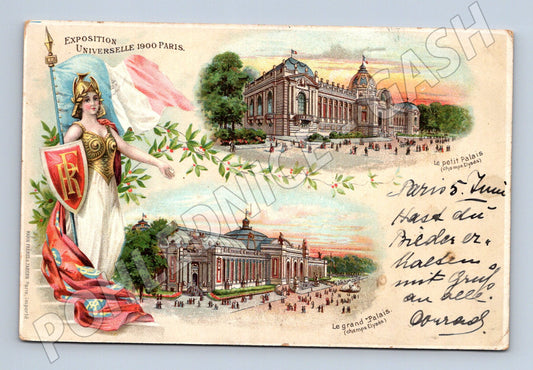 EXPOSITION
UNIVERSELLE 1900 PARIS.
RF
Le petit Palais
(champs Elysés)
Paris 5. Juni
Hast du
Bieder er-
halten
mit Gruß
an alle
Conrad
Le grand Palais
(champs Elysés)